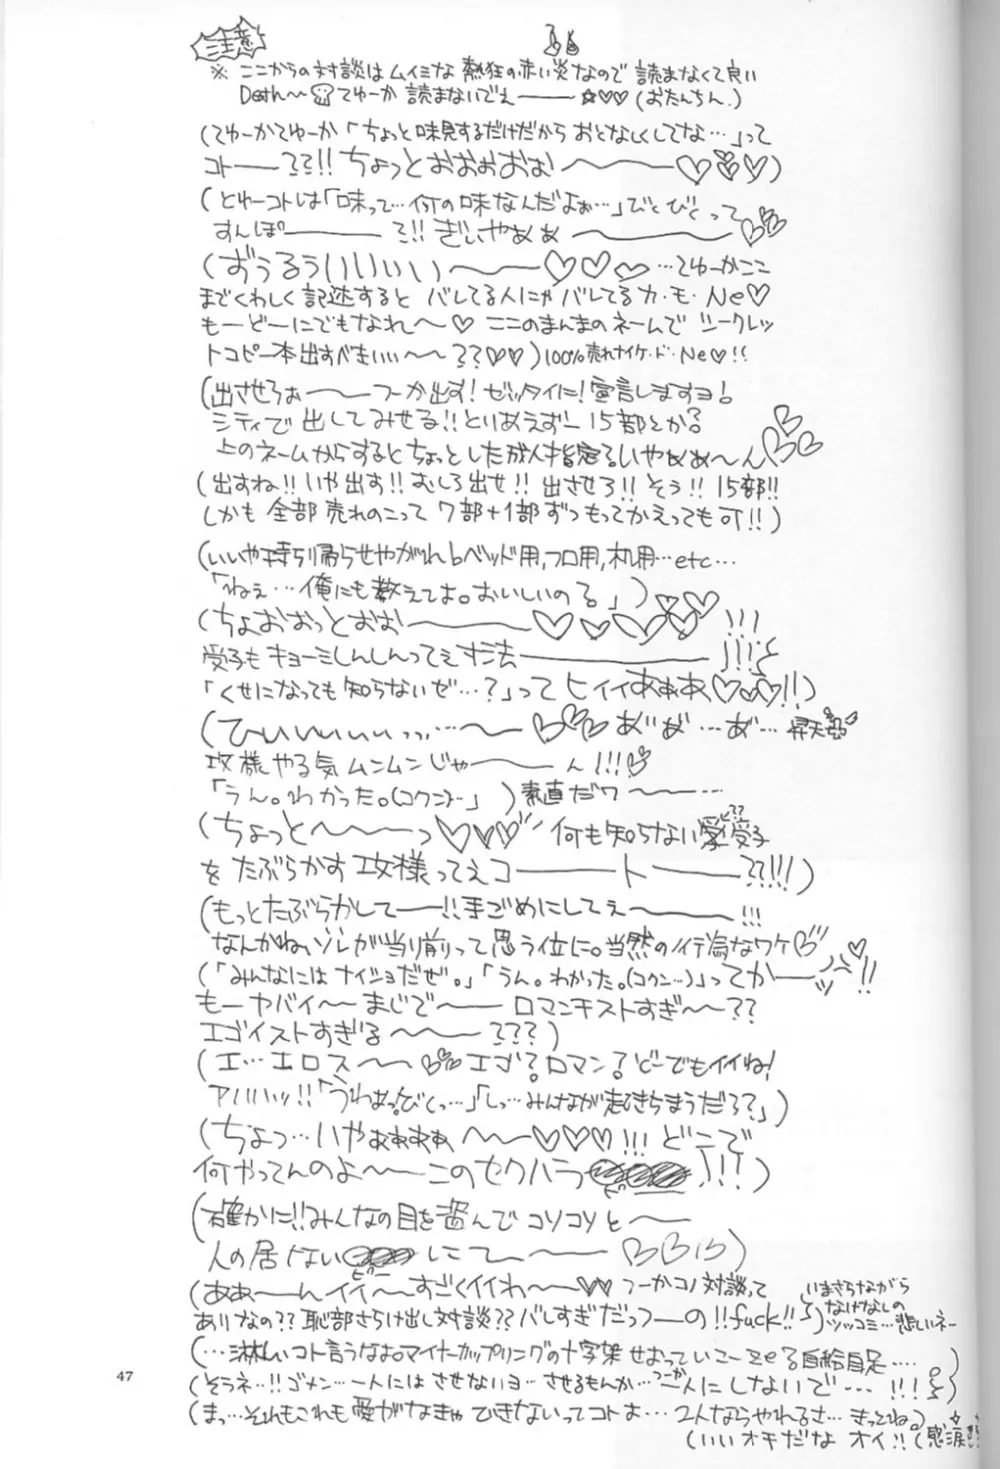 注意
※ ここからの対談はムイミな熱狂の赤い炎なので 読まなくて良い
Death〜 てゆーか 読まないでぇ――― ☆♡♡ (おたんちん。)
(てゆーかてゆーか「ちょっと味見するだけだから おとなしくしてな…」って
コト――??!! ちょっとおおぉおぉ 〜――〜 ♡♡♡)
(とゆーコトは「味って…何の味なんだよぉ…」びくびくって
すんぽー―――?!! ぎぃやぁぁぁ 〜――― ♡♡
(ずうるういいいぃい 〜――〜 ♡♡♡ …てゆーかここ
までくわしく記述すると バレてる人にゃ バレてるカ・モ・Ne♡
もーどーにでもなれ〜♡ ここのまんまのネームで シークレッ
トコピー本出すべきいぃ〜〜??♡♡) 100%売れナイケ・ド・Ne♡!!
(出させろぉ――〜 つーか出す! ゼッタイに! 宣言しますヨ!
シティで 出してみせる!! とりあえずー 15部とか?
上のネームからするとちょっとした成人指定?いやぁぁぁ〜ん ♡♡♡
(出すね!! いや出す!! むしろ出せ!! 出させろ!! そう!! 15部!!
しかも 全部 売れのこって 7部+1部ずつもってかえっても可!!)
(いいや持ち帰らせやがれ♭ベッド用,フロ用,机用…etc…
「ねぇ…俺にも教えてよ。おいしいの?」) ♡♡♡
(ちょおおっとおお――― ♡♡♡♡ !!!
受子もキョーミしんしんってえ寸法――――― !!!
「くせになっても知らないぜ…?」って ヒィィあぁぁぁ♡♡♡!!)
(ひぃいぃぃぃぃっっ…〜 ♡♡ あ゛ あ゛ …あ゛… 昇天
攻様やる気ムンムンじゃ――〜ん!!!♡
「うん。わかった。(コクンー…」) 素直だワ〜――…
(ちょっと〜――っ♡♡♡ 何も知らない愛受子
をたぶらかす攻様ってえコ―――ト―――??!!!)
(もっとたぶらかして――!! 手ごめにしてぇ――〜―― !!!
なんかね、ソレが当り前って思う位に。当然の行為なワケ♡
(「みんなにはナイショだぜ。」「うん。わかった。(コクン…)」ってか――ッ♡!!
もーヤバイ〜〜まじで〜―― ロマンチストすぎ〜〜??
エゴイストすぎる〜〜―― ???)
(エ…エロス〜〜 ♡♡ エゴ?ロマン?どーでもイイね!
アハハッ!! 「うわぁっ?びくっ…」「しっ…みんなが起きちまうだろ?」)
(ちょっ…いやぁぁぁぁぁ 〜〜―♡♡♡ !!! どこで
何やってんのよ〜――このセクハラ !!!)
(確かに!! みんなの目を盗んで コソコソと〜――
人の居ない にて〜――〜 ♡♡♡)
(ああ――ん イイ〜〜 すごくイイわ〜―♡♡ つーかコノ対談って
いまさらながら
なけなしの
ツッコミ…悲しいネー
ありなの?? 恥部さらけ出し対談?? バレすぎだっつーの!! fuck!!)
(…淋しいコト言うなよ。マイナーカップリングの十字架 せおっていこーZe?自給自足……)
(そうネ…!! ゴメン…一人には させないヨ…させるもんか…つーか一人にしないで…!!!)
(まっ…それもこれも愛がなきゃ できないってコトよ…2人ならやれるさ…きってね。)
(いいオチだな オイ!!(感涙
47